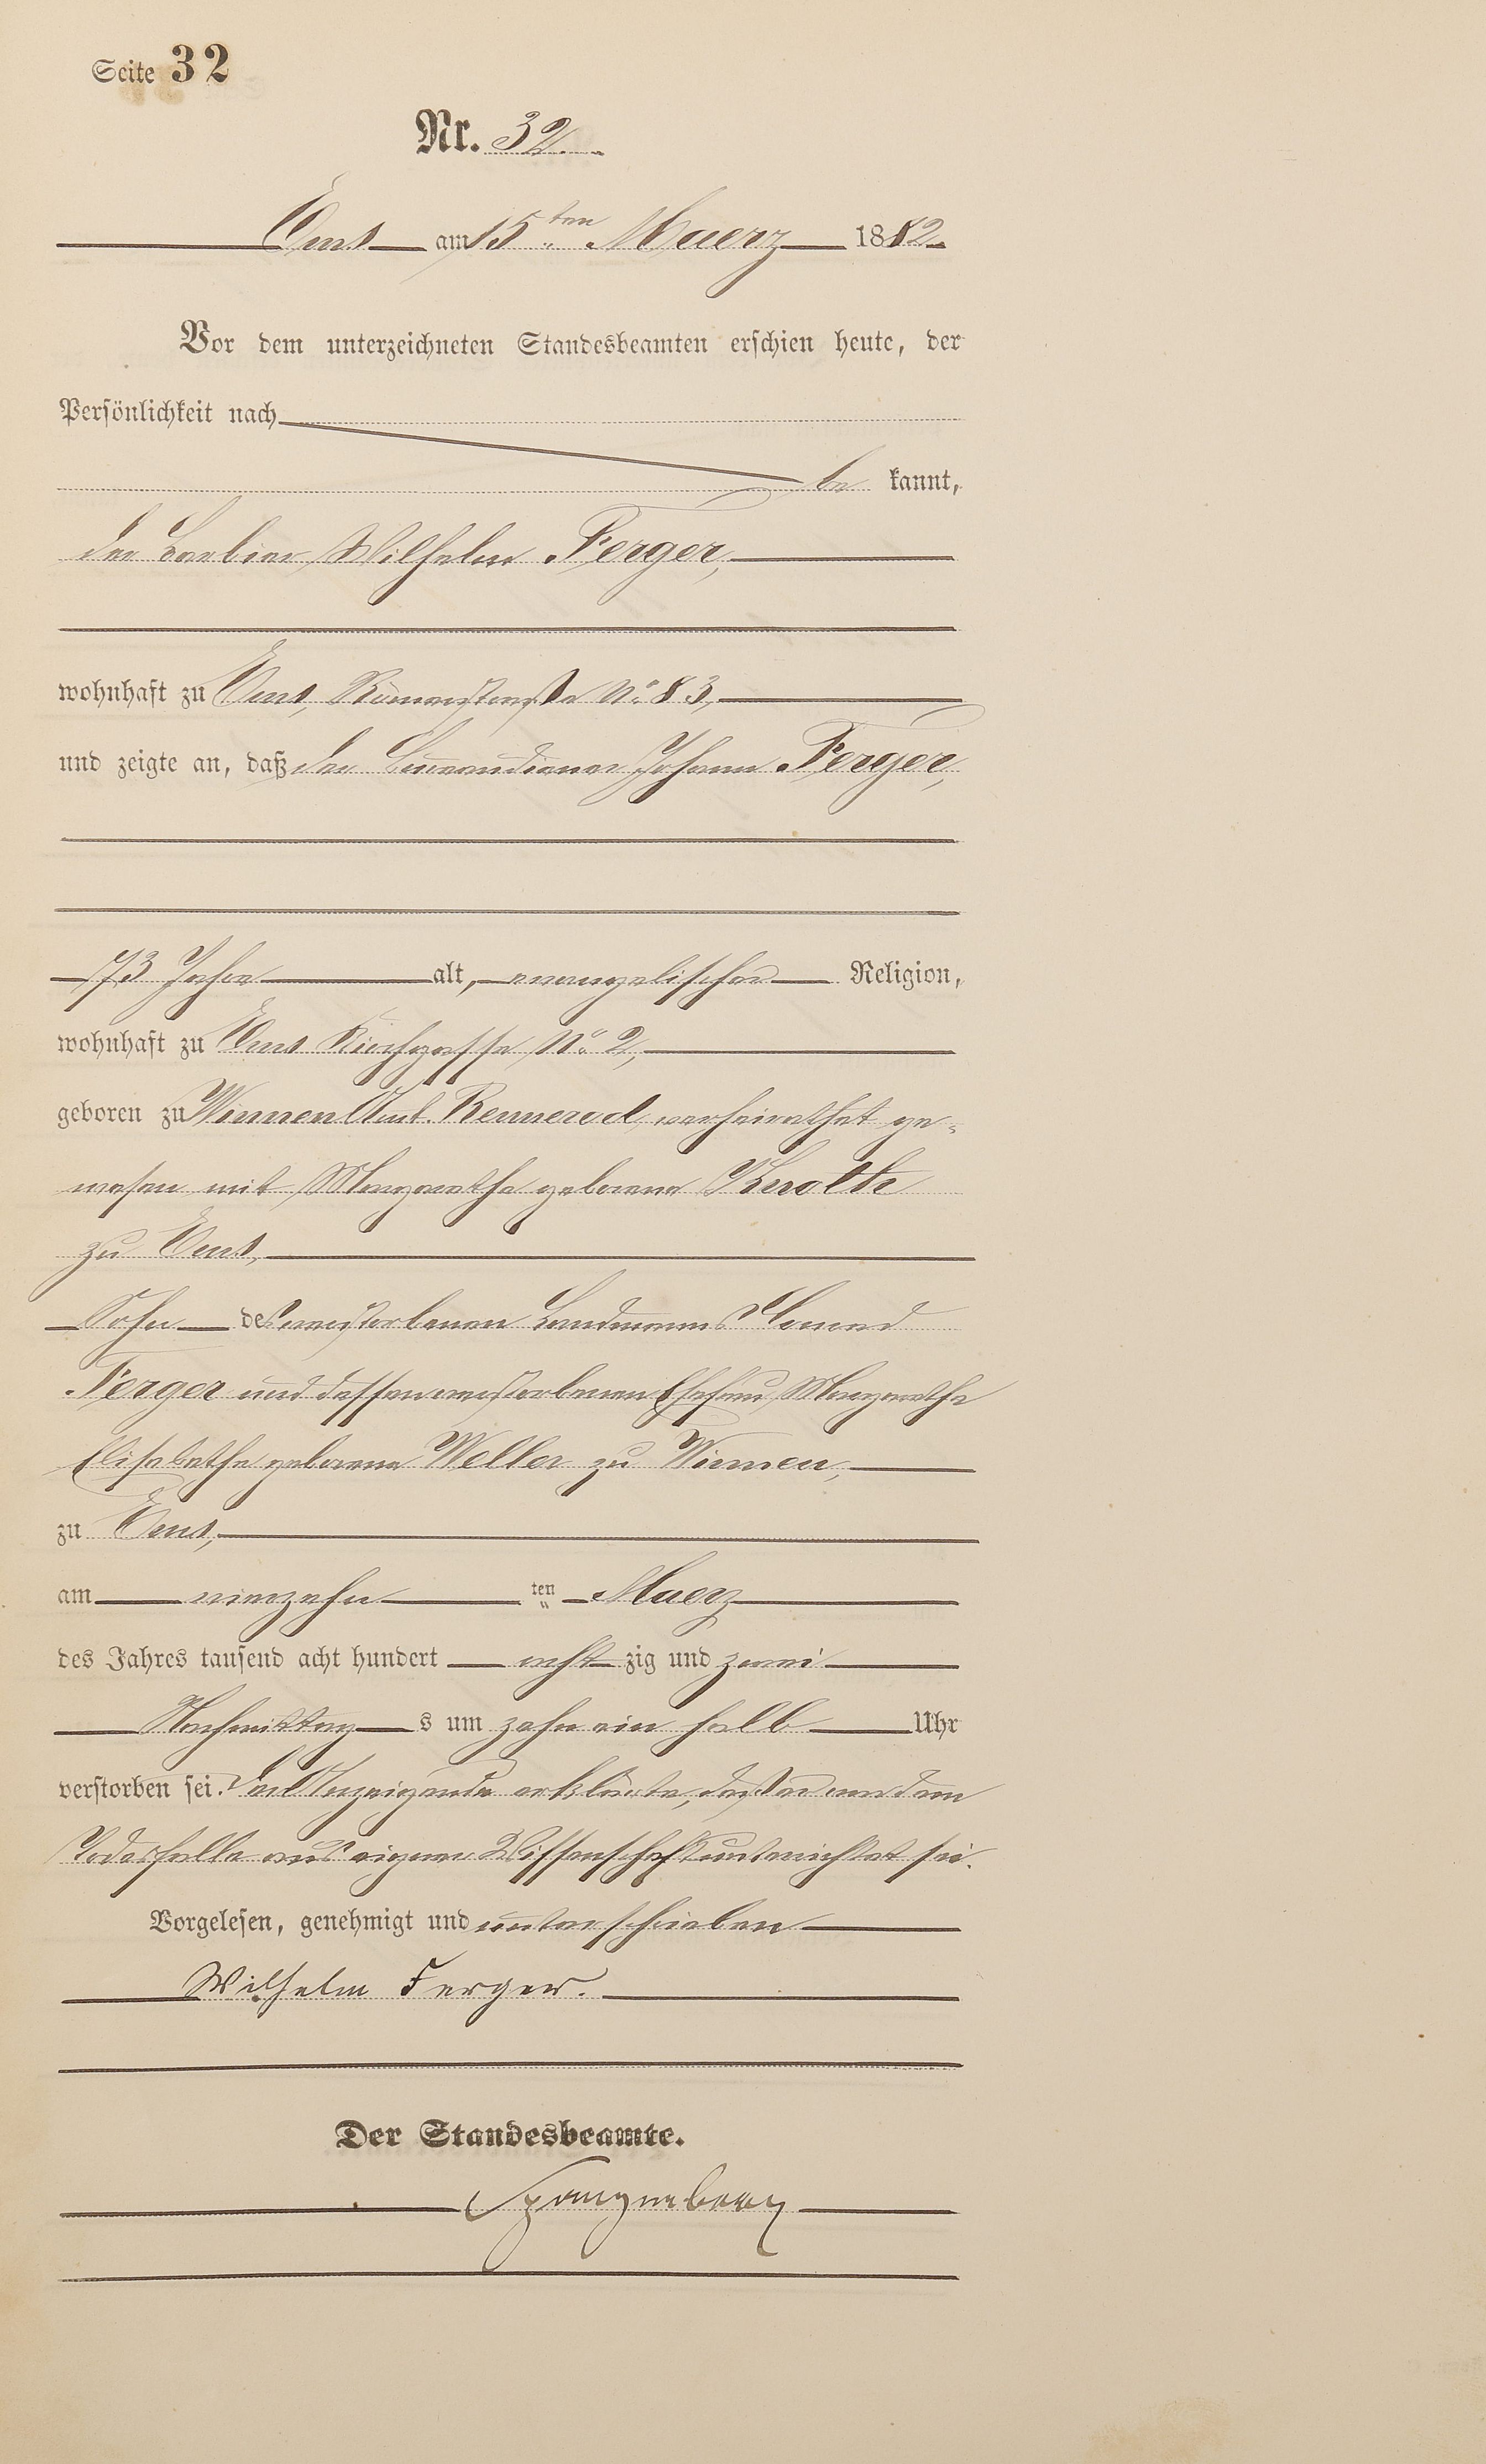 Seite 32
Nr. 32.
Ems am 15ten Maerz 1882.
Vor dem unterzeichneten Standesbeamten erschien heute, der
Persönlichkeit nach
be kannt,
der Barbier Wilhelm Ferger,
wohnhaft zu Ems, Römerstraße No 83,
und zeigte an, daß der Johann Ferger,
73 Jahre alt, evangelischer Religion,
wohnhaft zu Ems Kirchgasse No 2,
geboren zu Winnen Amt Rennerod, verheirathet ge-
wesen mit Margarethe geborene Knoth
zu Ems,
Sohn des verstorbenen Landmanns Conrad
Ferger und dessen verstorbenen Ehefrau Margarethe
Elisabethe geborene Weller zu Winnen,
zu Ems,
am vierzehn ten Maerz
des Jahres tausend acht hundert acht zig und zwei
Nachmittag s um zehn ein halb Uhr
verstorben sei. Der Anzeigende erklärte, daß er von dem
Todesfalle aus eigener Wissenschaft unterrichtet sei.
Vorgelesen, genehmigt und unterschrieben
Wilhelm Ferger.
Der Standesbeamte.
Spangenberg